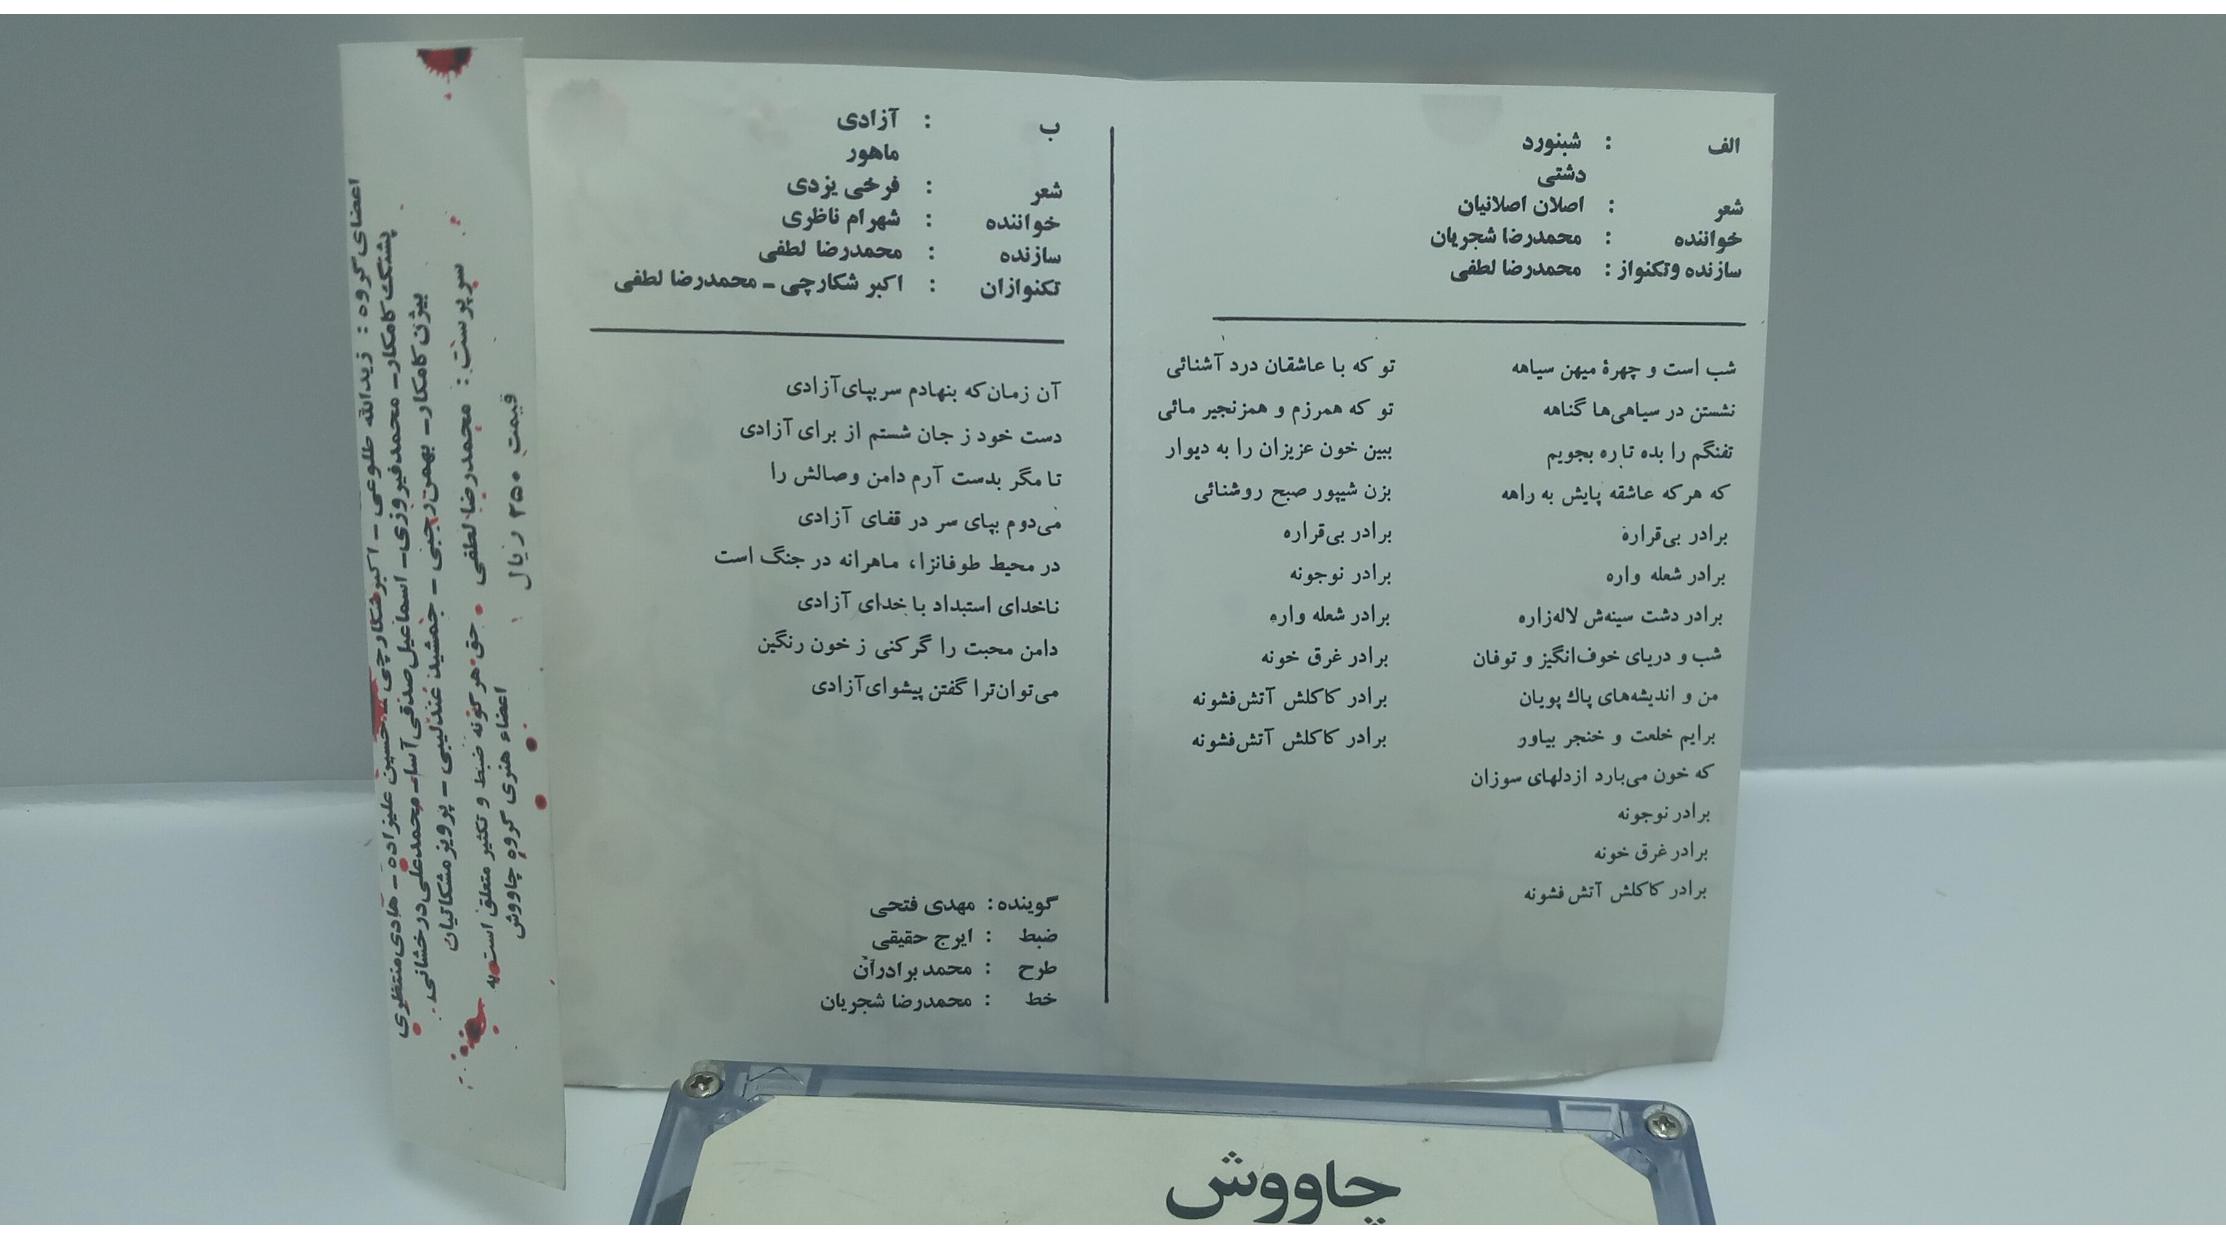 الف : شبنورد
دشتی
شعر : اصلان اصلانیان
خواننده : محمدرضا شجریان
سازنده وتکنواز : محمدرضا لطفی
شب است و چهرهٔ میهن سیاهه
نشستن در سیاهی‌ها گناهه
تفنگم را بده تا ره بجویم
که هرکه عاشقه پایش به راهه
برادر بی‌قراره
برادر شعله واره
برادر دشت سینه‌ش لاله‌زاره
شب و دریای خوف‌انگیز و توفان
من و اندیشه‌های پاك پویان
برایم خلعت و خنجر بیاور
که خون می‌بارد ازدلهای سوزان
برادر نوجونه
برادر غرق خونه
برادر کاکلش آتش فشونه
تو که با عاشقان درد آشنائی
تو که همرزم و همزنجیر مائی
ببین خون عزیزان را به دیوار
بزن شیپور صبح روشنائی
برادر بی‌قراره
برادر نوجونه
برادر شعله واره
برادر غرق خونه
برادر کاکلش آتش‌فشونه
برادر کاکلش آتش‌فشونه
ب : آزادی
ماهور
شعر : فرخی یزدی
خواننده : شهرام ناظری
سازنده : محمدرضا لطفی
تکنوازان : اکبر شکارچی ـ محمدرضا لطفی
آن زمان‌که بنهادم سربپای‌آزادی
دست خود ز جان شستم از برای آزادی
تا مگر بدست آرم دامن وصالش را
می‌دوم بپای سر در قفای آزادی
در محیط طوفانزا، ماهرانه در جنگ است
ناخدای استبداد با خدای آزادی
دامن محبت را گر کنی ز خون رنگین
می‌توان‌ترا گفتن پیشوای‌آزادی
گوینده : مهدی فتحی
ضبط : ایرج حقیقی
طرح : محمد برادرآن
خط : محمدرضا شجریان
اعضای‌گروه : زیدالله طلوعی ـ اکبرشکارچی ـ حسین علیزاده ـ هادی‌منتظری
پشنگ‌کامکار ـ محمدفیروزی ـ اسماعیل‌صدقی‌آسا ـ محمدعلی‌درخشانی
بیژن‌کامکار ـ بهمن‌رجبی ـ جمشید عندلیبی ـ پرویزمشکاتیان
سرپرست : محمدرضا لطفی • حق هرگونه ضبط و تکثیر متعلق است به
اعضاء هنری گروه چاووش
قیمت ۲۵۰ ریال
چاووش